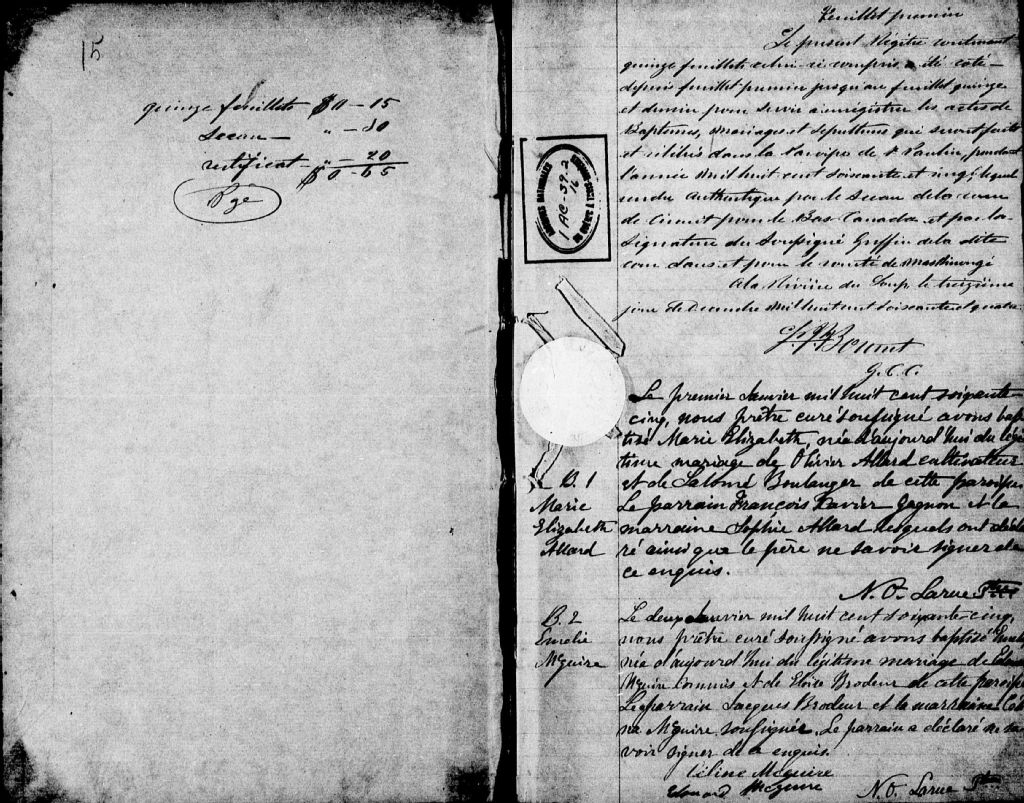 15
quinze feuillets $0-15
Sceau - " -30
certificat - " - 20
$0-65
Pgé
Feuillet premier
Le présent Régître contenant
quinze feuillets celui-ci compris a été coté
depuis feuillet premier jusqu'au feuillet quinze
et dernier pour servir à enregistrer les actes de
Baptêmes, Mariages et Sépultures qui seront faits
et célébrés dans la Paroisse de St Paulin, pendant
l'année Mil huit cent soixante et cinq, lequel
rendu Authentique par le Sceau de la cour
de Circuit pour le Bas-Canada et par la
Signature du Soussigné Greffier de la dite
cour dans et pour le comté de Maskinongé
A la Rivière du Loup le treizième
jour de Décembre Mil huit cent soixante et quatre
G. C. C.
ARCHIVES NATIONALES
1 AC-59-2
16
Le premier Janvier mil huit cent soixante
cinq, nous prêtre curé soussigné avons bap
tisé Marie Elizabeth, née d'aujourd'hui du légi
time mariage de Olivier Allard cultivateur
B. 1 et de Salomé Boulanger de cette paroisse
Marie Le parrain François Xavier Gagnon et la
Elizabeth marraine Sophie Allard lesquels ont décla
Allard ré ainsi que le père ne savoir signer de
ce enquis.
N. O. Larue Ptre
B. 2 Le deux Janvier mil huit cent soixante-cinq,
Emélie nous prêtre curé soussigné avons baptisé
McGuire née d'aujourd'hui du légitime mariage de
McGuire Commis et de Eloïse Brodeur de cette paroisse
Le parrain Jacques Brodeur et la marraine Céli
ne McGuire soussignée. Le parrain a déclaré ne sa
voir signer de ce enquis.
Céline McGuire
Edouard McGuire N. O. Larue Ptre